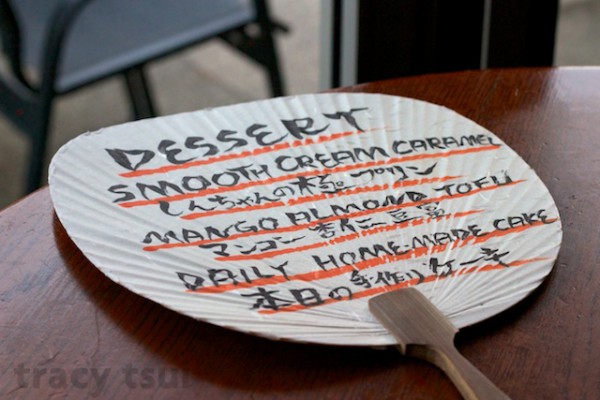 DESSERT
SMOOTH CREAM CARAMEL
しんちゃんの極上プリン
MANGO ALMOND TOFU
マンゴー杏仁豆腐
DAILY HOME-MADE CAKE
本日の手作りケーキ
tracy tsui